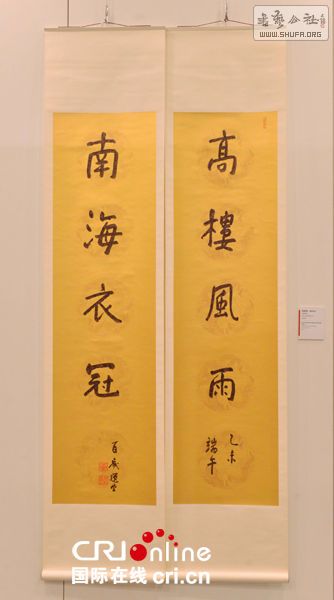 高樓風雨
乙未
端午
南海衣冠
百歲選堂
WWW.SHUFA.ORG
CRIonline
国际在线 cri.cn